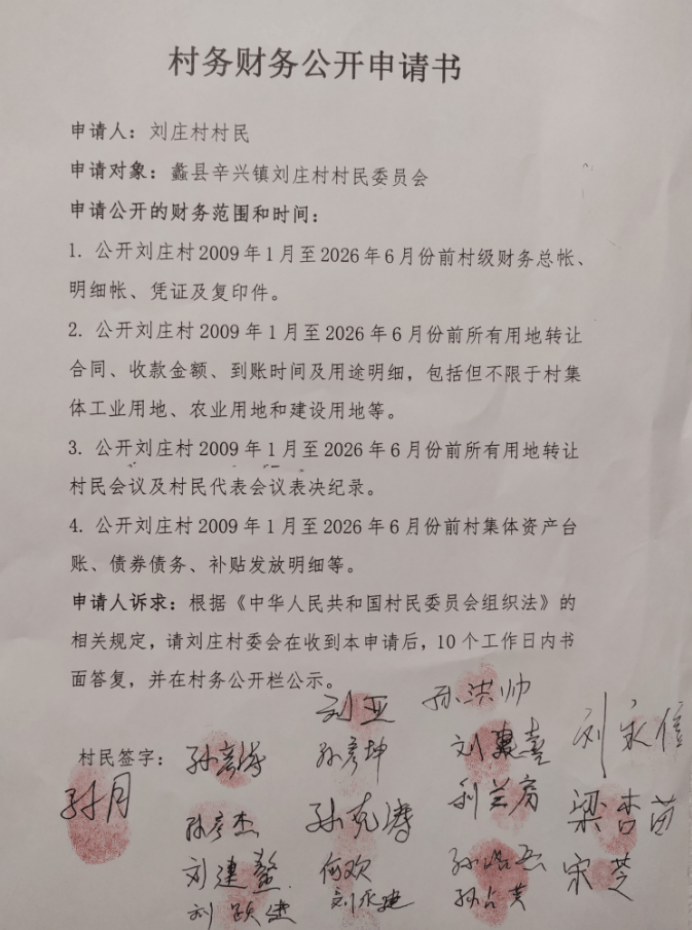 村务财务公开申请书
申请人：刘庄村村民
申请对象：蠡县辛兴镇刘庄村村民委员会
申请公开的财务范围和时间：
1. 公开刘庄村2009年1月至2026年6月份前村级财务总帐、
明细帐、凭证及复印件。
2. 公开刘庄村2009年1月至2026年6月份前所有用地转让
合同、收款金额、到账时间及用途明细，包括但不限于村集
体工业用地、农业用地和建设用地等。
3. 公开刘庄村2009年1月至2026年6月份前所有用地转让
村民会议及村民代表会议表决纪录。
4. 公开刘庄村2009年1月至2026年6月份前村集体资产台
账、债券债务、补贴发放明细等。
申请人诉求：根据《中华人民共和国村民委员会组织法》的
相关规定，请刘庄村委会在收到本申请后，10个工作日内书
面答复，并在村务公开栏公示。
刘亚 孙洪帅
村民签字： 孙彦涛 孙彦坤 刘 刘永信
孙月
孙彦杰 孙克涛 梁杏苗
刘建鳌 何欢 宋芝
刘跃进 刘永建 孙占英